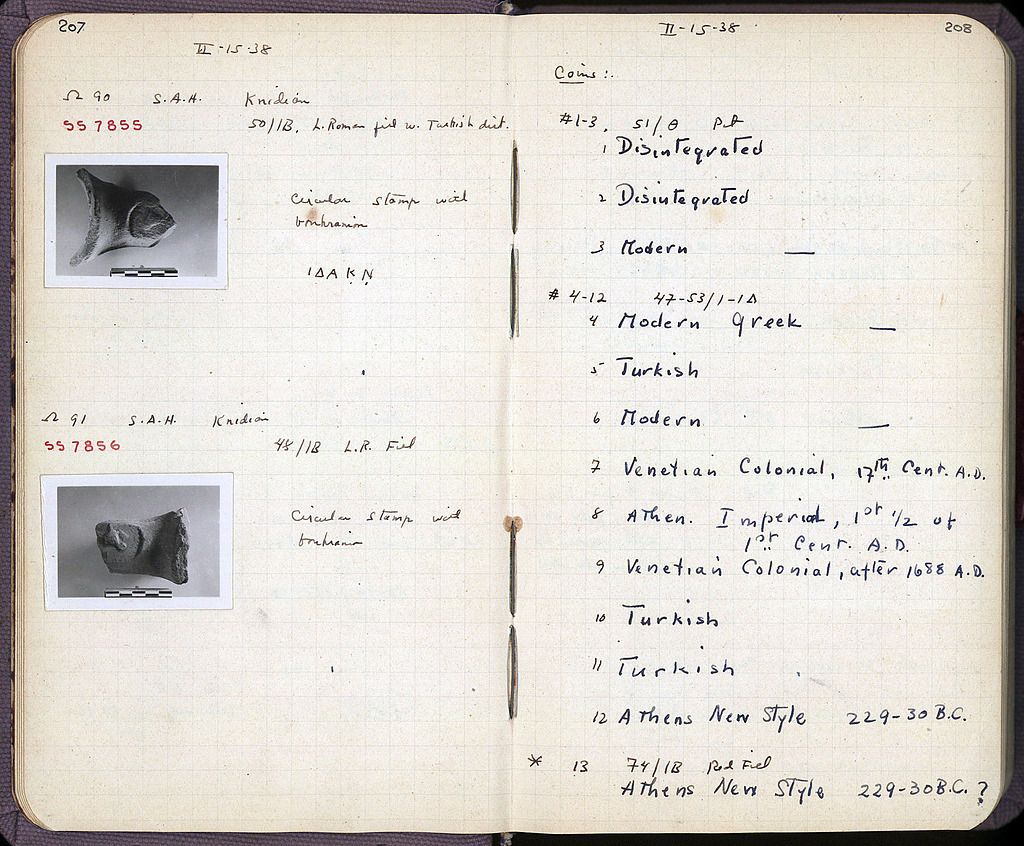 207
II-15-38
Ω 90 S.A.H. Knidian
SS 7855 50/IB, L. Roman fill w. Turkish dist.
Circular stamp with
boukranion
ΙΔΑ Κ Ν
Ω 91 S.A.H. Knidian
SS 7856 48/IB L.R. Fill
Circular stamp with
boukranion
II-15-38 208
Coins:.
#1-3, 51/Θ Pit
1 Disintegrated
2 Disintegrated
3 Modern —
# 4-12 47-53/1-1Δ
4 Modern Greek —
5 Turkish
6 Modern —
7 Venetian Colonial, 17th Cent. A.D.
8 Athen. Imperial, 1st 1/2 of
1st Cent. A.D.
9 Venetian Colonial, after 1688 A.D.
10 Turkish
11 Turkish
12 Athens New Style 229-30 B.C.
* 13 74/IB Red Fill
Athens New Style 229-30 B.C. ?